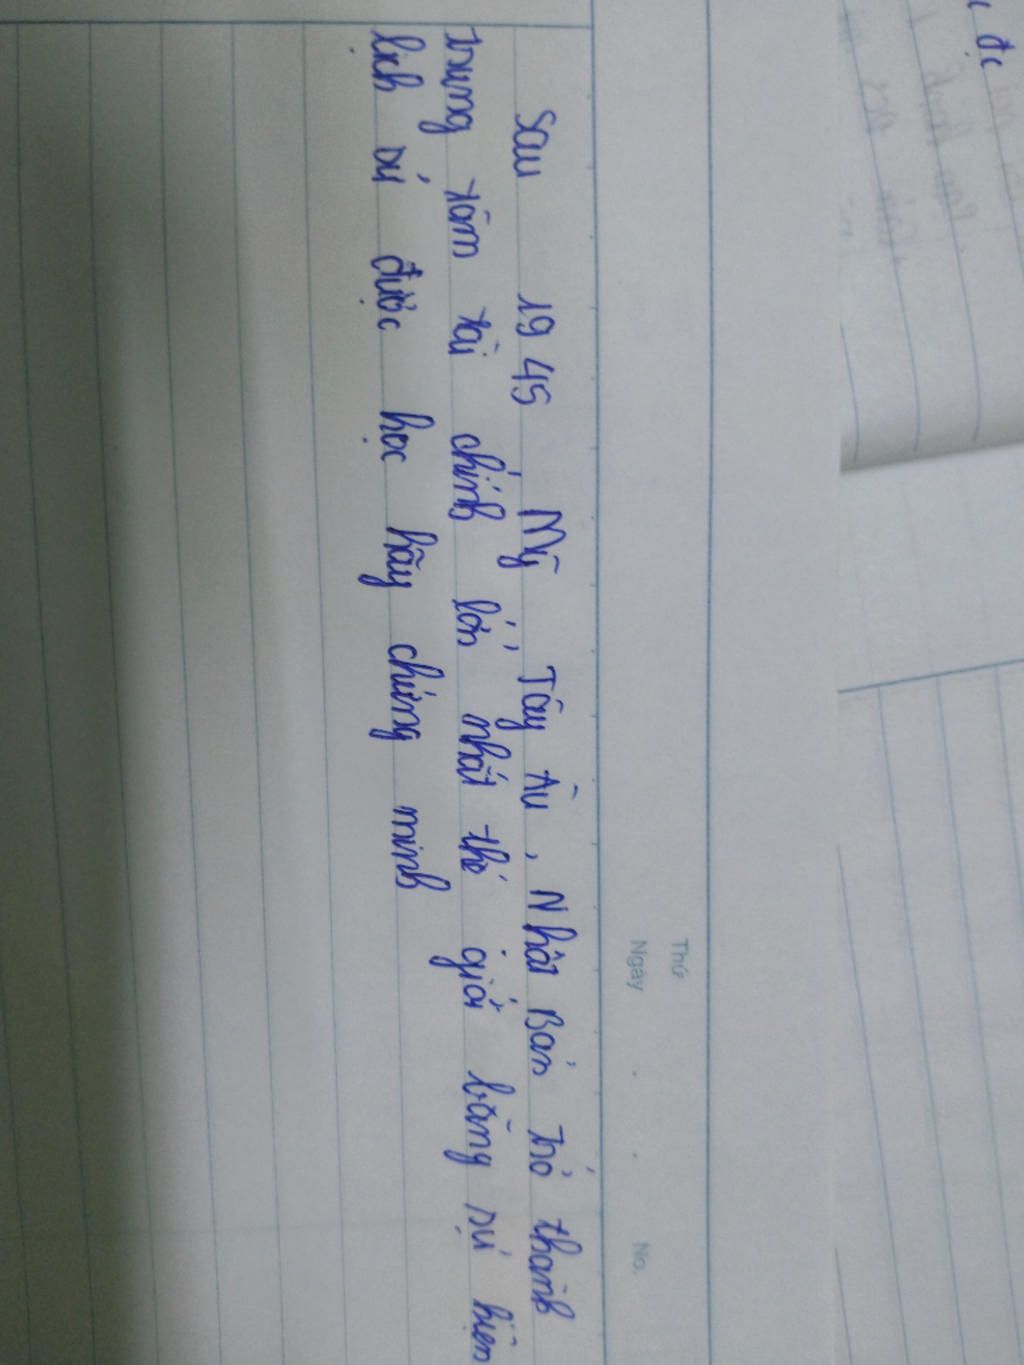 Thứ
Ngày . . No.
Sau 1945 Mỹ, Tây Âu, Nhật Bản trở thành
trung tâm tài chính lớn nhất thế giới bằng sự kiện
lịch sử được học hãy chứng minh